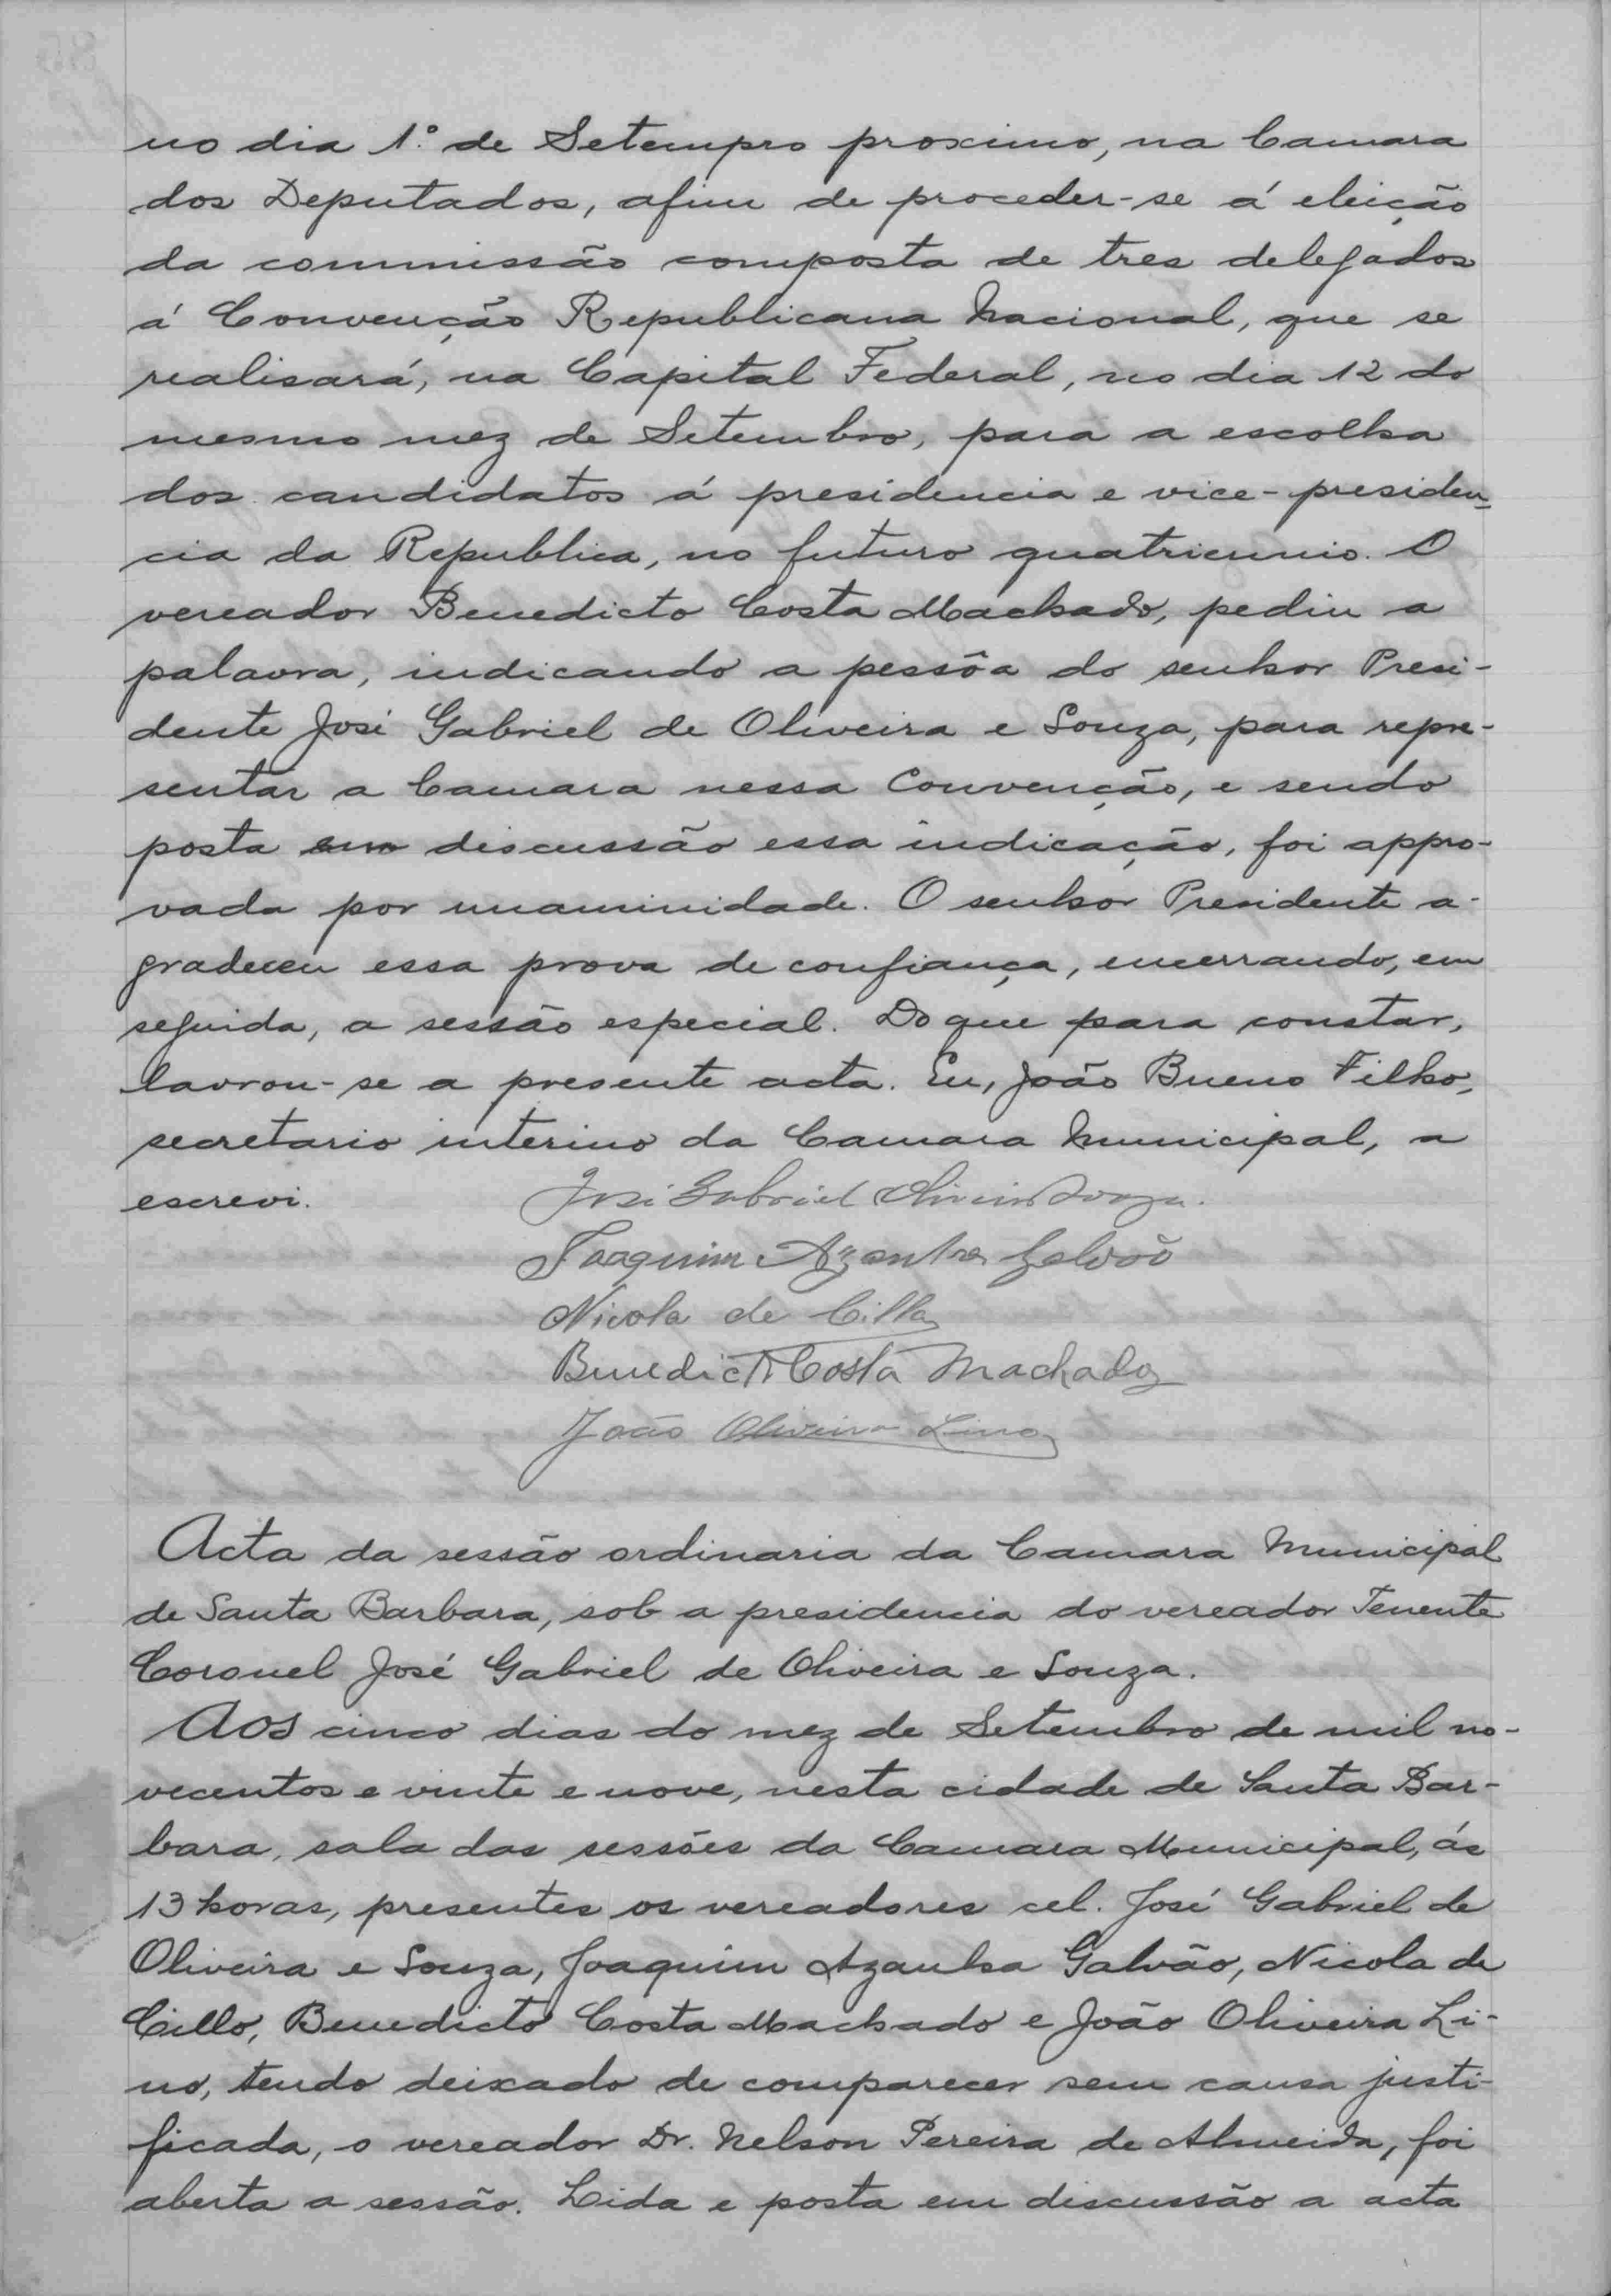 no dia 1º de Setempro proximo, na Camara
dos Deputados, afim de proceder-se á eleição
da commissão composta de tres delegados
á Convenção Republicana Nacional, que se
realisará, na Capital Federal, no dia 12 do
mesmo mez de Setembro, para a escolha
dos candidatos á presidencia e vice-presiden-
cia da Republica, no futuro quatriennio. O
vereador Benedicto Costa Machado, pediu a
palavra, indicando a pessôa do senhor Presi-
dente José Gabriel de Oliveira e Souza, para repre-
sentar a Camara nessa Convenção, e sendo
posta em discussão essa indicação, foi appro-
vada por unaminidade. O senhor Presidente a-
gradeceu essa prova de confiança, encerrando, em
seguida, a sessão especial. Do que para constar,
lavrou-se a presente acta. Eu, João Bueno Filho,
secretario interino da Camara Municipal, a
escrevi. José Gabriel Oliveira Souza.
Joaquim Azanha Galvão
Nicola de Cillo
Benedicto Costa Machado
João Oliveira Lino
Acta da sessão ordinaria da Camara Municipal
de Santa Barbara, sob a presidencia do vereador Tenente
Coronel José Gabriel de Oliveira e Souza.
Aos cinco dias do mez de Setembro de mil no-
vecentos e vinte e nove, nesta cidade de Santa Bar-
bara, sala das sessões da Camara Municipal, ás
13 horas, presentes os vereadores cel. José Gabriel de
Oliveira e Souza, Joaquim Azanha Galvão, Nicola de
Cillo, Benedicto Costa Machado e João Oliveira Li-
no, tendo deixado de comparecer sem causa justi-
ficada, o vereador Dr. Nelson Pereira de Almeida, foi
aberta a sessão. Lida e posta em discussão a acta